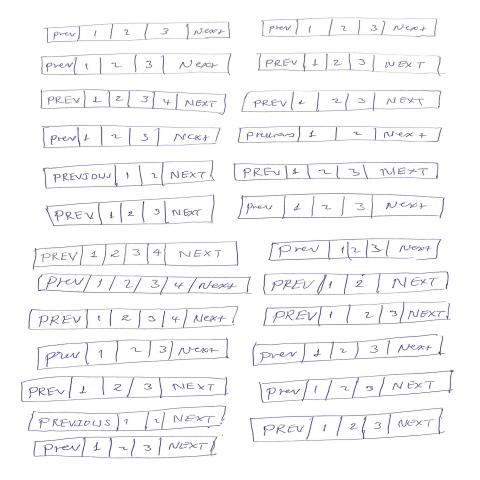 prev 1 2 3 Next
prev 1 2 3 Next
prev 1 2 3 Next
PREV 1 2 3 NEXT
PREV 1 2 3 4 NEXT
PREV 1 2 3 NEXT
prev 1 2 3 Next
Previous 1 2 Next
PREVIOUS 1 2 NEXT
PREV 1 2 3 NEXT
PREV 1 2 3 NEXT
Prev 1 2 3 Next
PREV 1 2 3 4 NEXT
Prev 1 2 3 Next
Prev 1 2 3 4 Next
PREV 1 2 NEXT
PREV 1 2 3 4 Next
PREV 1 2 3 NEXT
prev 1 2 3 Next
prev 1 2 3 Next
PREV 1 2 3 NEXT
prev 1 2 3 NEXT
PREVIOUS 1 2 NEXT
PREV 1 2 3 NEXT
Prev 1 2 3 NEXT